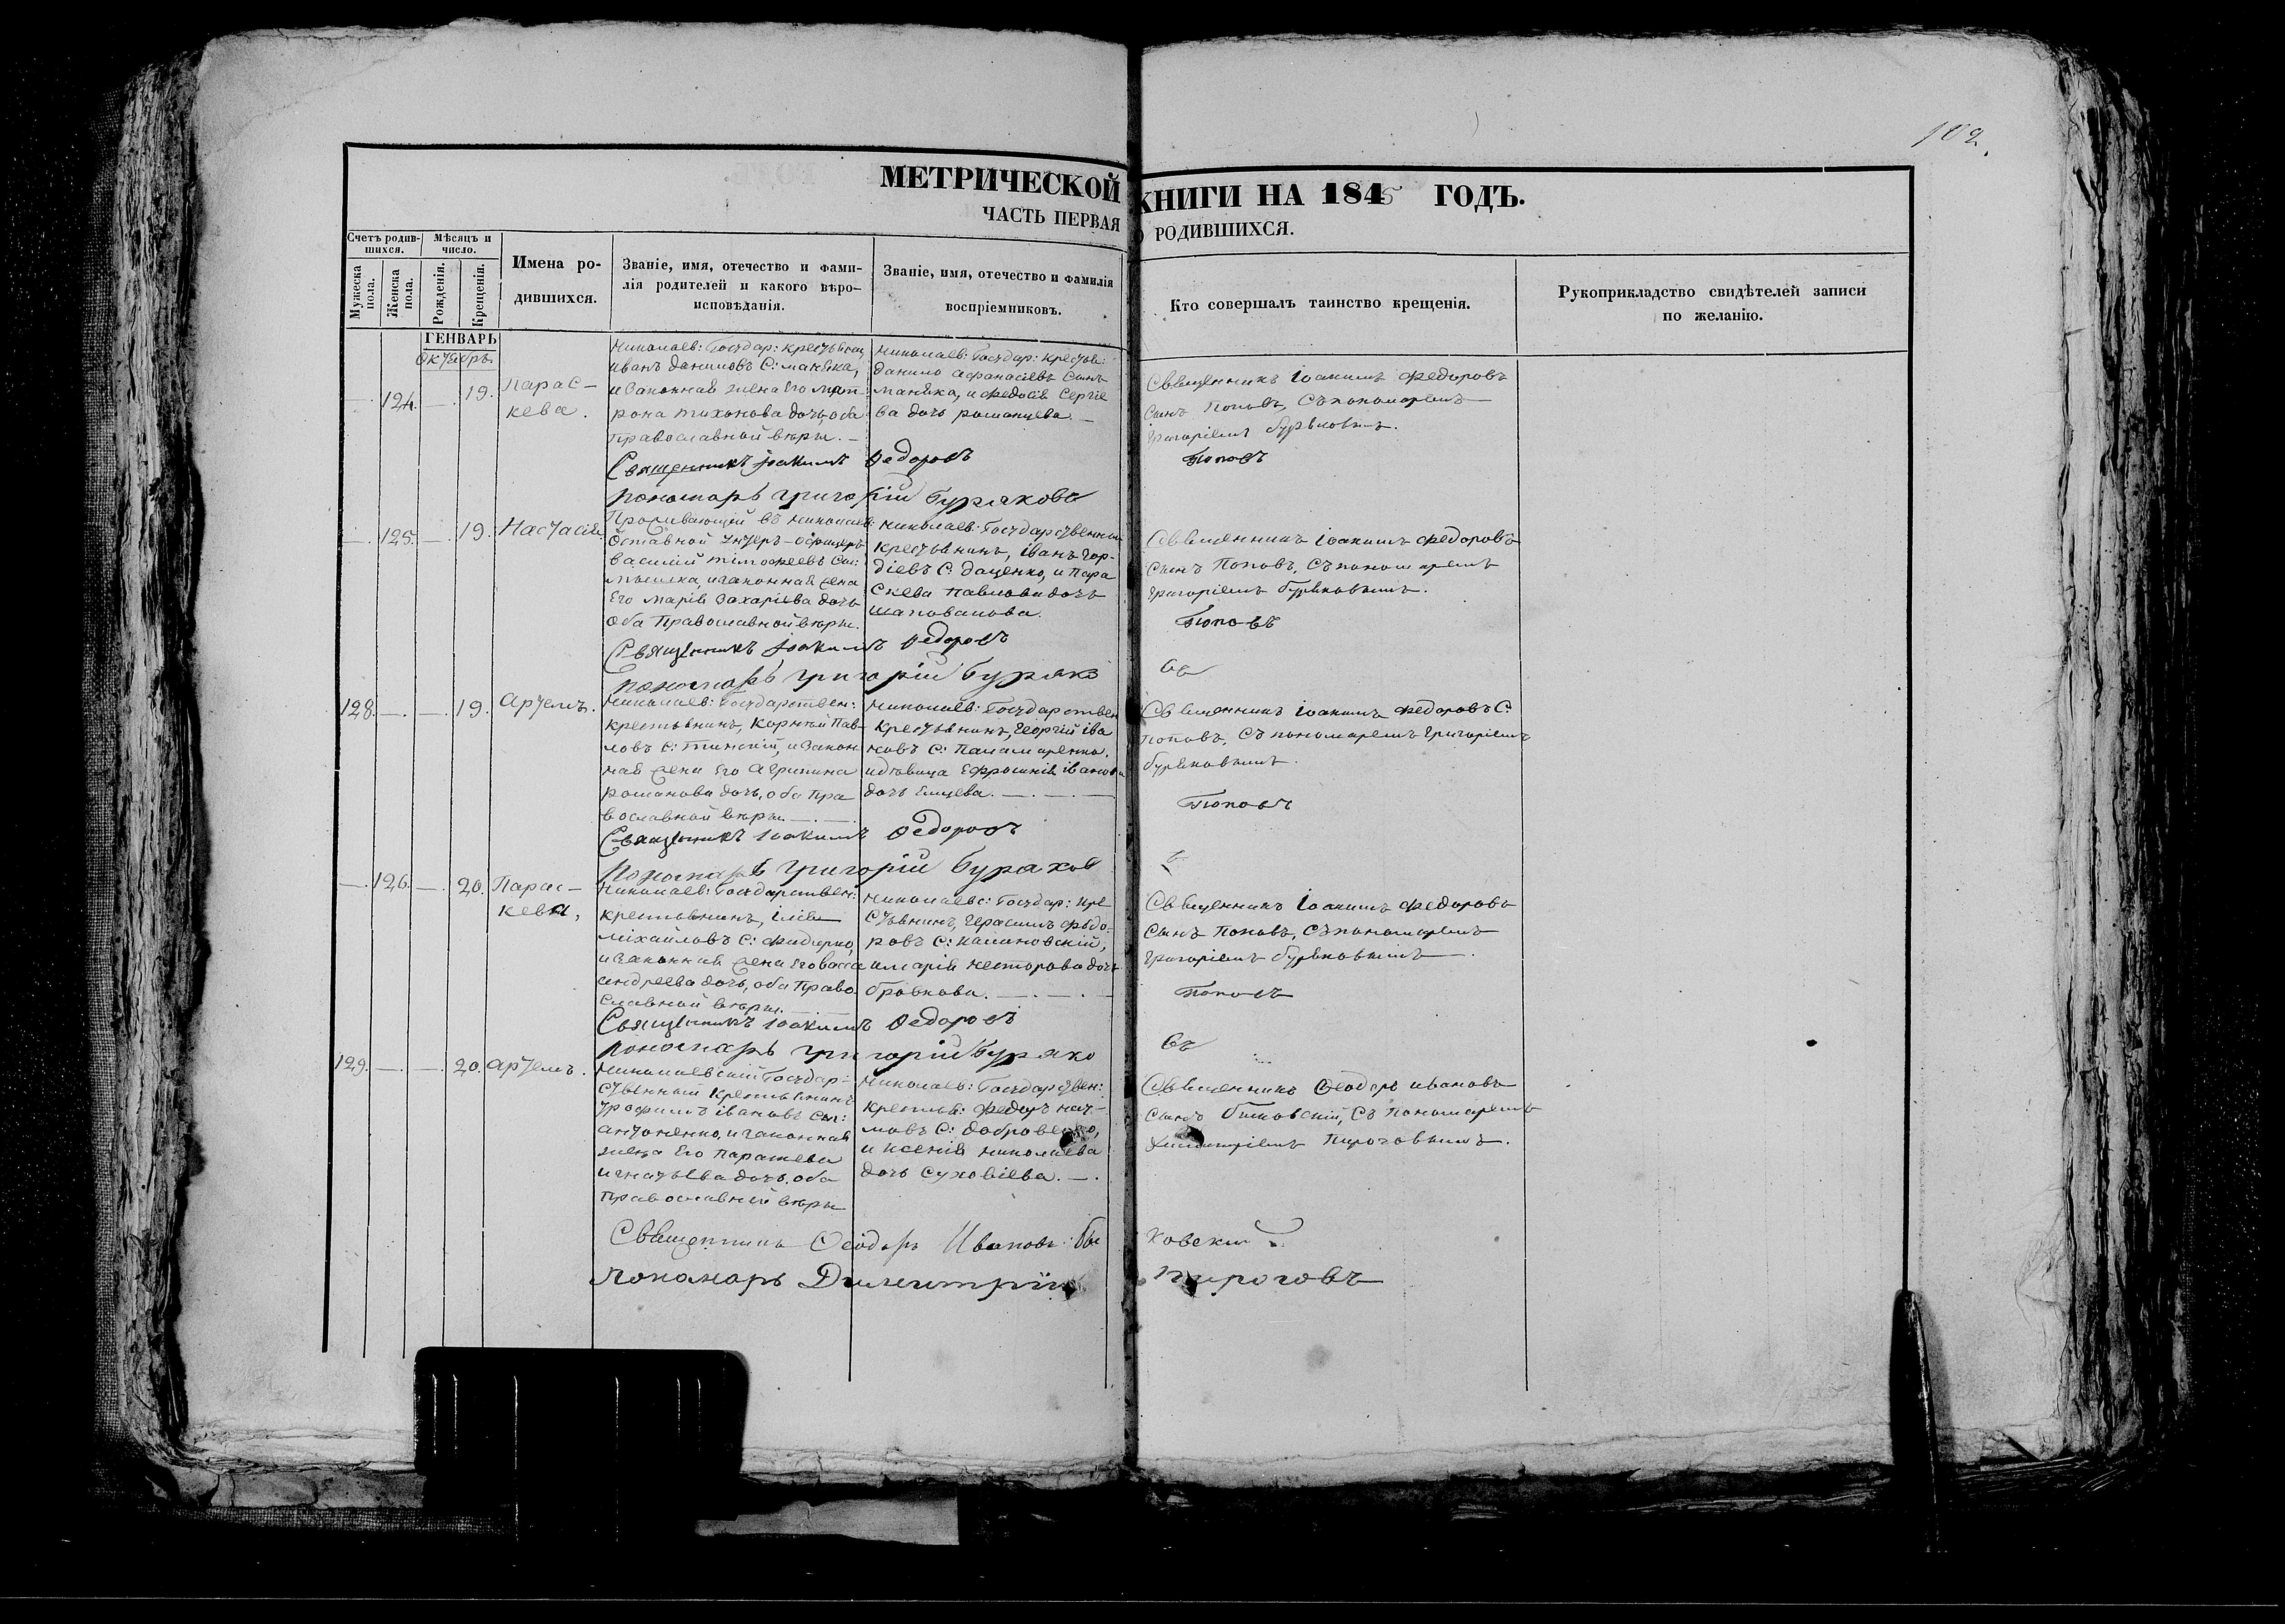 102.
МЕТРИЧЕСКОЙ КНИГИ НА 1845 ГОДЪ.
ЧАСТЬ ПЕРВАЯ О РОДИВШИХСЯ.
Счетъ родив-
шихся.
Мужеска пола.
Женска пола.
Мѣсяцъ и
число.
Рожденія.
Крещенія.
Имена ро-
дившихся.
Званіе, имя, отечество и фами-
лія родителей и какого вѣро-
исповѣданія.
Званіе, имя, отечество и фамилія
воспріемниковъ.
Кто совершалъ таинство крещенія.
Рукоприкладство свидѣтелей записи
по желанію.
ГЕНВАРЬ
Октябрь
— 124. — 19.
Парас-
кева.
Николаев: Государ: крестьянин
иванъ даниловъ С: манѣка,
и законная жена Его мат-
рона тихонова дочь, оба
православной вѣры. —
Николаев: Государ: крестья:
данило афанасіевъ Сынъ
манѣка, и федосія Сергіе
ва дочь романцева. —
Священникъ іоакимъ федоровъ
Сынъ Поповъ, Съ пономаремъ
григоріемъ буряковымъ.
Священникъ Іоакимъ Федоровъ Поповъ
Пономарь Григорій Буряковъ
— 125. — 19. Настасія
Проживающій въ николаев:
Отставной Унтеръ-офицеръ
василій тімофеевъ Сы:
и законная жена
Его марія Захаріева дочь
Оба Православной вѣры.
Николаев: Государственны
крестьянинъ, іванъ гор-
діевъ С: даценко, и Пара
Скева павлова дочь
шаповалова.
Священникъ іоакимъ федоровъ
Сынъ Поповъ, Съ пономаремъ
григоріемъ буряковымъ.
Священникъ Іоакимъ Федоровъ Поповъ
Пономарь Григорій Буряковъ
128. — — 19. Артемъ.
Николаев: Государствен:
крестьянинъ, Корнѣй Пав-
ловъ С: и закон
ная жена Его Агрипина
романова дочь, оба Пра
вославной вѣры. — —
Николаев: Государствен
Крестьянинъ, Георгій іва
новъ С: Паламаренко.
и дѣвица Ефросинія іванова
дочь Емцева. — — —
Священникъ іоакимъ федоровъ С:
поповъ, Съ пономаремъ григоріемъ
буряковымъ.
Священникъ Іоакимъ Федоровъ Поповъ
Пономарь Григорій Буряковъ
— 126. — 20.
Парас-
кева,
Николаев: Государствен:
крестьянинъ, ілія
міхайловъ С:
и законная жена Его васса
андреева дочь, оба Право
славной вѣры.
Николаевс: Государ: кре
стьянинъ, Герасимъ
ровъ С: калиновскій,
и марія несторова дочь
бровкова. — — —
Священникъ Іоакимъ федоровъ
Сынъ Поповъ, Съ пономаремъ
григоріемъ буряковымъ —
Священникъ Іоакимъ Федоровъ Поповъ
Пономарь Григорій Буряковъ
129. — — 20. Артемъ.
Николаевскій Государ-
ственный Крестьянинъ
трофимъ івановъ Сы:
антоненко, и законная
жена Его Параскева
игнатьева дочь. оба
православной вѣры
Николаев: Государствен:
крестья: федоръ
С: добровенко,
и ксенія николаева
дочь Суховіева. —
Священникъ Феодоръ ивановъ
Сынъ Быковскій, Съ Пономаремъ
Димитріемъ Пироговымъ.
Священникъ Феодоръ Ивановъ Быковскій
Пономарь Димитрій Пироговъ